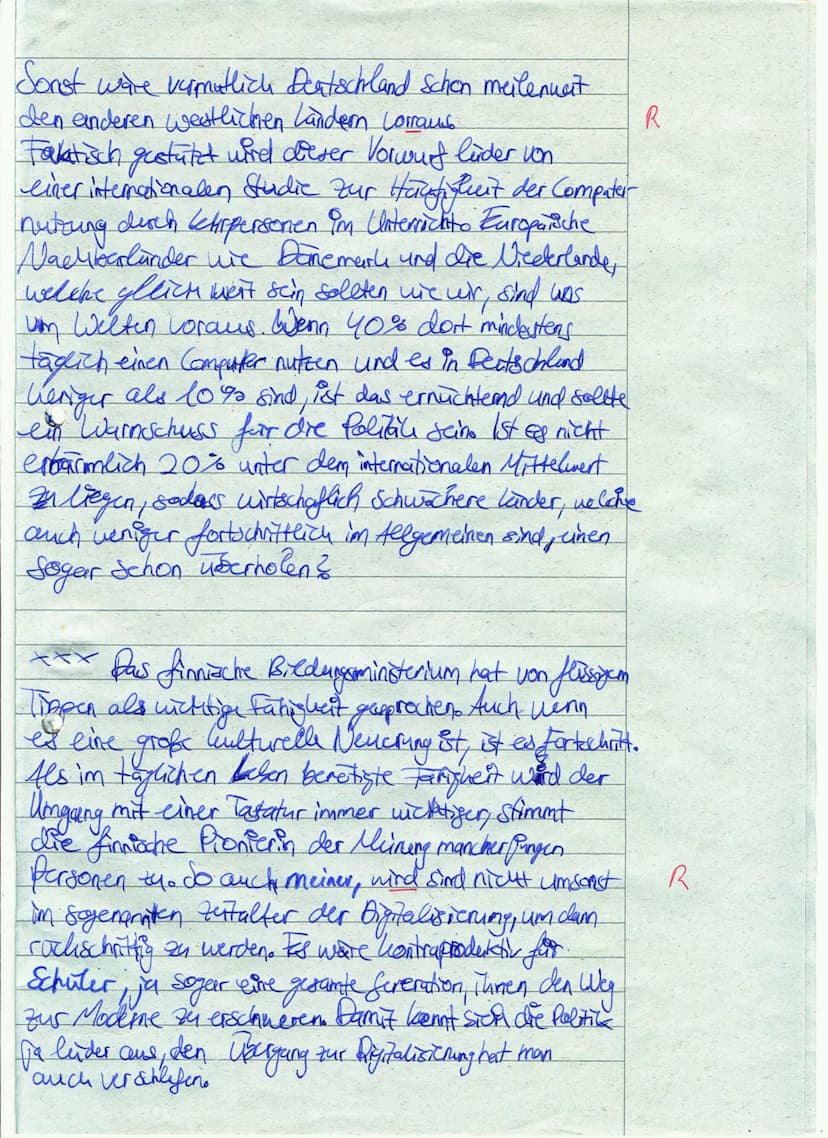 Sonst wäre vermutlich Deutschland schon meilenweit
den anderen westlichen Ländern vorraus.
R
Faktisch gestützt wird dieser Vorwurf leider von
einer internationalen Studie zur Häufigkeit der Computer-
nutzung durch Lehrpersonen im Unterricht. Europäische
Nachbarländer wie Dänemark und die Niederlande,
welche gleich weit sein sollten wie wir, sind uns
um Welten voraus. Wenn 40% dort mindestens
täglich einen Computer nutzen und es in Deutschland
weniger als 10% sind, ist das ernüchternd und sollte
ein Warnschuss für die Politik sein. Ist es nicht
erbärmlich 20% unter dem internationalen Mittelwert
zu liegen, sodass wirtschaftlich schwächere Länder, welche
auch weniger fortschrittlich im Allgemeinen sind, einen
sogar schon überholen?
*** Das finnische Bildungsministerium hat von flüssigem
Tippen als wichtige Fähigkeit gesprochen. Auch wenn
es eine große kulturelle Neuerung ist, ist es Fortschritt.
Als im täglichen Leben benötigte Fähigkeit wird der
Umgang mit einer Tastatur immer wichtiger, stimmt
die finnische Pionierin der Meinung mancher jungen
Personen zu. So auch meiner, wird sind nicht umsonst
R
im sogenannten Zeitalter der Digitalisierung, um dann
rückschrittig zu werden. Es wäre kontraproduktiv für
Schüler, ja sogar eine gesamte Generation, ihnen den Weg
zur Moderne zu erschweren. Damit kennt sich die Politik
ja leider aus, den Übergang zur Digitalisierung hat man
auch verschlafen.